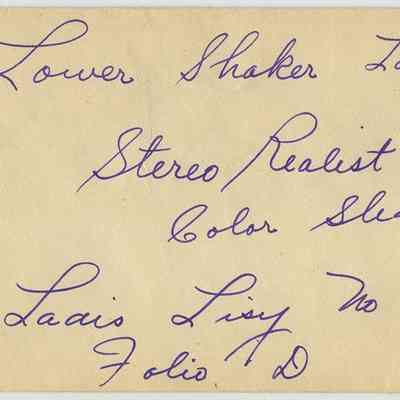 Lower Shaker La
Stereo Realist
Color Sli
Ladis Lisy No
Folio D